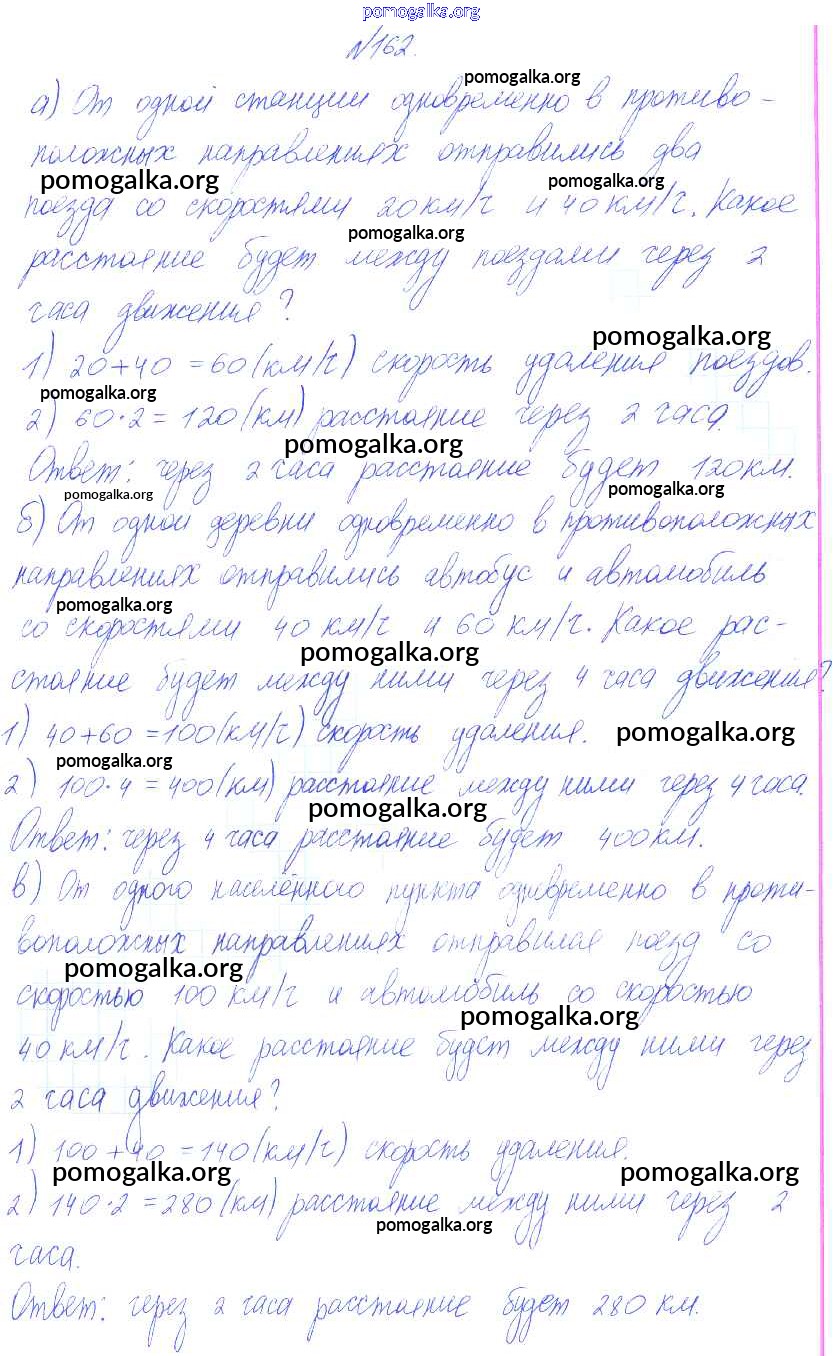 pomogalka.org
№162.
pomogalka.org
а) От одной станции одновременно в противо-
положных направлениях отправились два
pomogalka.org pomogalka.org
поезда со скоростями 20 км/ч и 40 км/ч. Какое
pomogalka.org
расстояние будет между поездами через 2
часа движения?
pomogalka.org
1) 20+40 =60(км/ч) скорость удаления поездов.
pomogalka.org
2) 60·2=120(км) расстояние через 2 часа.
pomogalka.org
Ответ: через 2 часа расстояние будет 120км.
pomogalka.org pomogalka.org
б) От одной деревни одновременно в противоположных
направлениях отправились автобус и автомобиль
pomogalka.org
со скоростями 40 км/ч и 60 км/ч. Какое рас-
pomogalka.org
стояние будет между ними через 4 часа движения?
1) 40+60 =100(км/ч) скорость удаления. pomogalka.org
pomogalka.org
2) 100·4 =400(км) расстояние между ними через 4 часа.
pomogalka.org
Ответ: через 4 часа расстояние будет 400км.
в) От одного населённого пункта одновременно в проти-
воположных направлениях отправилая поезд со
pomogalka.org
скоростью 100 км/ч и автомобиль со скоростью
pomogalka.org
40 км/ч. Какое расстояние будет между ними через
2 часа движения?
1) 100+40 =140(км/ч) скорость удаления.
pomogalka.org pomogalka.org
2) 140·2 =280(км) расстояние между ними через 2
pomogalka.org
часа.
Ответ: через 2 часа расстояние будет 280 км.